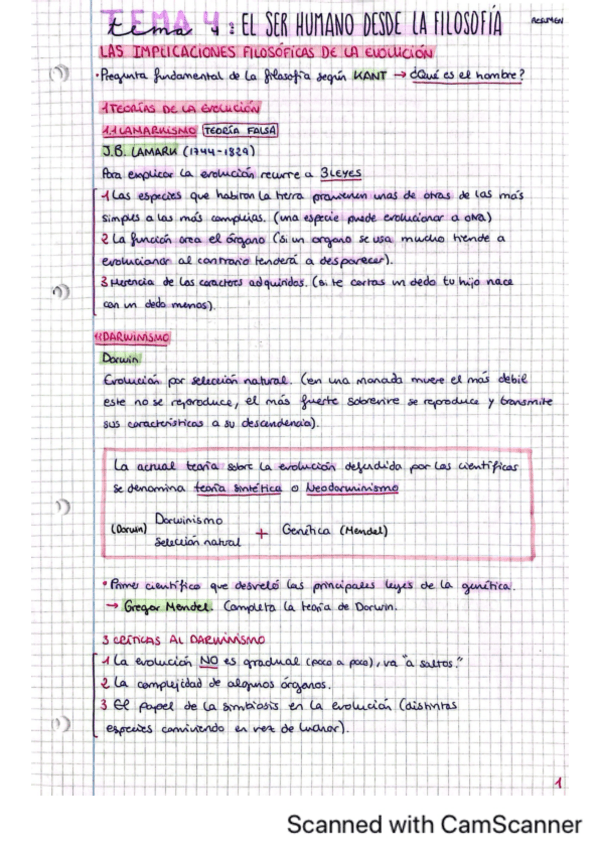 TEMA 4
tema 4: EL SER HUMANO DESDE LA FILOSOFÍA
RESUMEN
LAS IMPLICACIONES FILOSÓFICAS DE LA EVOLUCIÓN
·Pregunta fundamental de la filosofía según KANT → ¿Qué es el hombre?
1 TEORÍAS DE LA EVOLUCIÓN
1.1 LAMARKISMO TEORÍA FALSA
J.B. LAMARK (1744-1829)
Para explicar la evolución recurre a 3 LEYES
1 Las especies que habitan la tierra provienen unas de otras de las más
simples a las más complejas. (una especie puede evolucionar a otra)
2 La función crea el órgano (si un organo se usa mucho tiende a
evolucionar al contrario tenderá a desparecer).
3 Herencia de los caracteres adquiridos. (si te cortas un dedo tu hijo nace
con un dedo menos).
DARWINISMO
Darwin
Evolución por selección natural. (en una manada muere el más debil
este no se reproduce, el más fuerte sobrevive se reproduce y transmite
sus características a su descendencia).
La actual teoría sobre la evolución defendida por los científicos
se denomina teoría sintética o Neodarwinismo
(Darwin) Darwinismo + Genética (Mendel)
Selección natural
·Primer científico que desveló las principales leyes de la genética.
→ Gregor Mendel. Completa la teoría de Darwin.
3 CRÍTICAS AL DARWINISMO
1 La evolución NO es gradual (poco a poco), va "a saltos."
2 La complejidad de algunos órganos.
3 El papel de la simbiosis en la evolución (distintas
especies conviviendo en vez de luchar).
1
Scanned with CamScanner